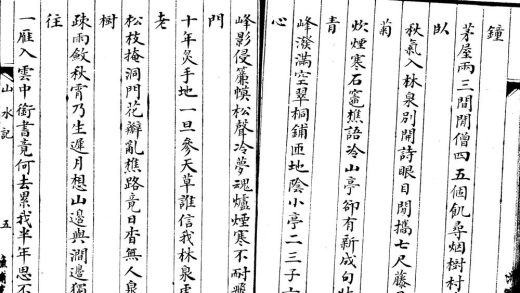 鐘
茅屋兩三間閒僧四五個飢尋烟樹村
臥
秋氣入林泉別開詩眼目閒攜七尺藤
菊
炊煙寒石竈樵語冷山亭卻有新成句
青
峰潑滿空翠桐鋪匝地陰小亭二三子
心
峰影侵簾幙松聲冷夢魂爐煙寒不耐
門
十年炙手地一旦參天草誰信我林泉
老
松枝掩洞門花瓣亂樵路竟日杳無人泉
樹
疎雨斂秋霄乃生遲月想山邊與澗邊獨
往
一雁入雲中銜書竟何去累我半年思不
山水記
五